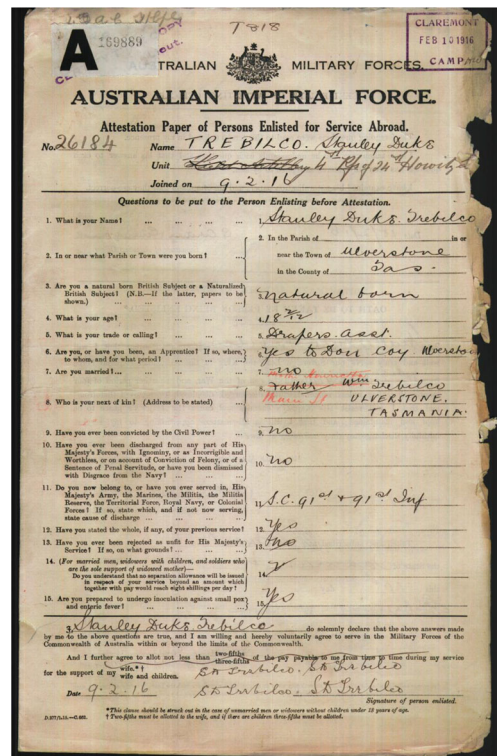 T818
CLAREMONT
FEB 10 1916
CAMP
A
169889
AUSTRALIAN MILITARY FORCES.
AUSTRALIAN IMPERIAL FORCE.
Attestation Paper of Persons Enlisted for Service Abroad.
No. 26184 Name TREBILCO. Stanley Duke
Unit 4th Rfts of 24th Howitz
Joined on 9.2.16
Questions to be put to the Person Enlisting before Attestation.
1. What is your Name? ... ... ... ... 1. Stanley Duke Trebilco
2. In or near what Parish or Town were you born? ... 2. In the Parish of in or
near the Town of Ulverstone
in the County of Tas.
3. Are you a natural born British Subject or a Naturalized British Subject? (N.B.—If the latter, papers to be shown.) 3. natural born
4. What is your age? 4. 18
5. What is your trade or calling? 5. Drapers Asst.
6. Are you, or have you been, an Apprentice? If so, where, to whom, and for what period? 6. Yes to Don Coy Ulverston
7. Are you married? 7. no
8. Who is your next of kin? (Address to be stated) 8. Father Wm Trebilco
Main St ULVERSTONE.
TASMANIA.
9. Have you ever been convicted by the Civil Power? 9. no
10. Have you ever been discharged from any part of His Majesty's Forces, with Ignominy, or as Incorrigible and Worthless, or on account of Conviction of Felony, or of a Sentence of Penal Servitude, or have you been dismissed with Disgrace from the Navy? 10. no
11. Do you now belong to, or have you ever served in, His Majesty's Army, the Marines, the Militia, the Militia Reserve, the Territorial Force, Royal Navy, or Colonial Forces? If so, state which, and if not now serving, state cause of discharge 11. S.C. 91st & 91st Inf
12. Have you stated the whole, if any, of your previous service? 12. Yes
13. Have you ever been rejected as unfit for His Majesty's Service? If so, on what grounds? 13. no
14. (For married men, widowers with children, and soldiers who are the sole support of widowed mother)—
Do you understand that no separation allowance will be issued in respect of your service beyond an amount which together with pay would reach eight shillings per day? 14.
15. Are you prepared to undergo inoculation against small pox and enteric fever? 15. Yes
I, Stanley Duke Trebilco do solemnly declare that the above answers made
by me to the above questions are true, and I am willing and hereby voluntarily agree to serve in the Military Forces of the
Commonwealth of Australia within or beyond the limits of the Commonwealth.
And I further agree to allot not less than two-fifths three-fifths of the pay payable to me from time to time during my service
for the support of my wife*† wife and children.
S D Trebilco. S D Trebilco
Date 9.2.16 S D Trebilco. S D Trebilco
Signature of person enlisted.
*This clause should be struck out in the case of unmarried men or widowers without children under 18 years of age.
† Two-fifths must be allotted to the wife, and if there are children three-fifths must be allotted.